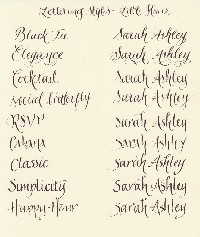 Lettering Styles - Little Flower
Black Tie Sarah Ashley
Elegance Sarah Ashley
Cocktail Sarah Ashley
Social Butterfly Sarah Ashley
RSVP Sarah Ashley
Cabana Sarah Ashley
Classic Sarah Ashley
Simplicity Sarah Ashley
Happy Hour Sarah Ashley